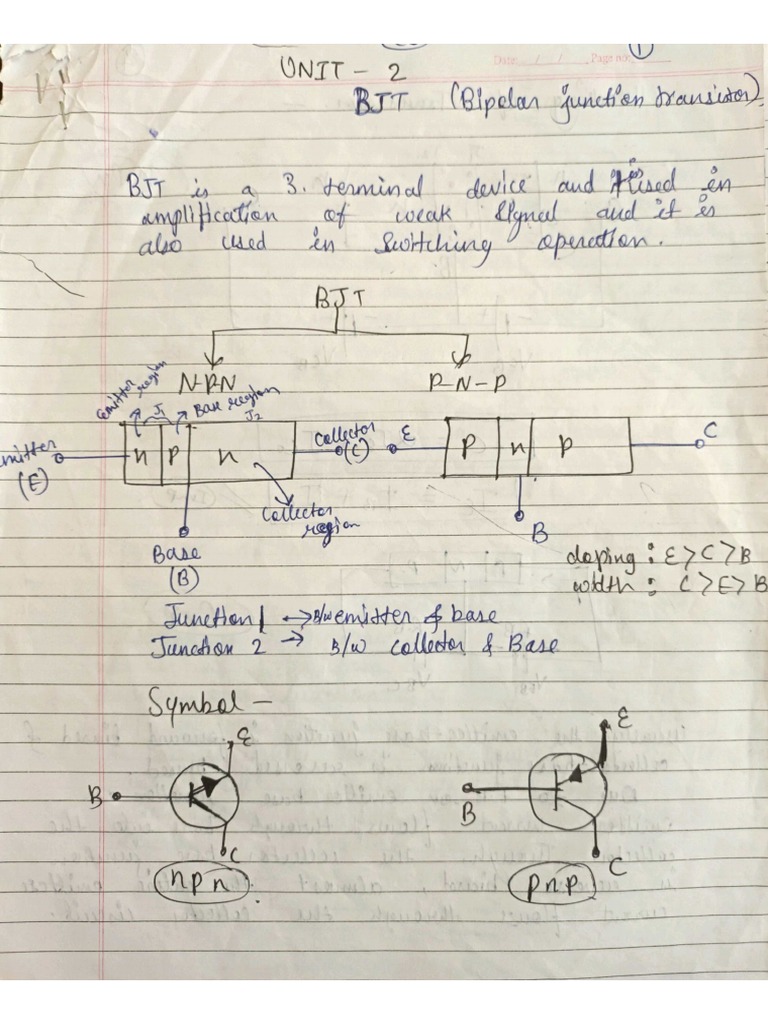 Date: / / Page no: 1
UNIT - 2
BJT (Bipolar junction transistor).
BJT is a 3. terminal device and used in
amplification of weak signal and it is
also used in switching operation.
BJT
N-P-N P-N-P
Emitter region J1 Base region J2
Emitter (E) n p n Collector (C) E p n p C
Collector region
Base (B) B
doping : E > C > B
width : C > E > B
Junction 1 → B/w emitter & base
Junction 2 → B/w collector & Base
Symbol -
E E
B B
C C
npn pnp